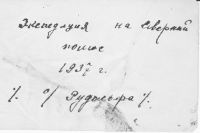 Экспедиция на Северный
полюс
1937 г.